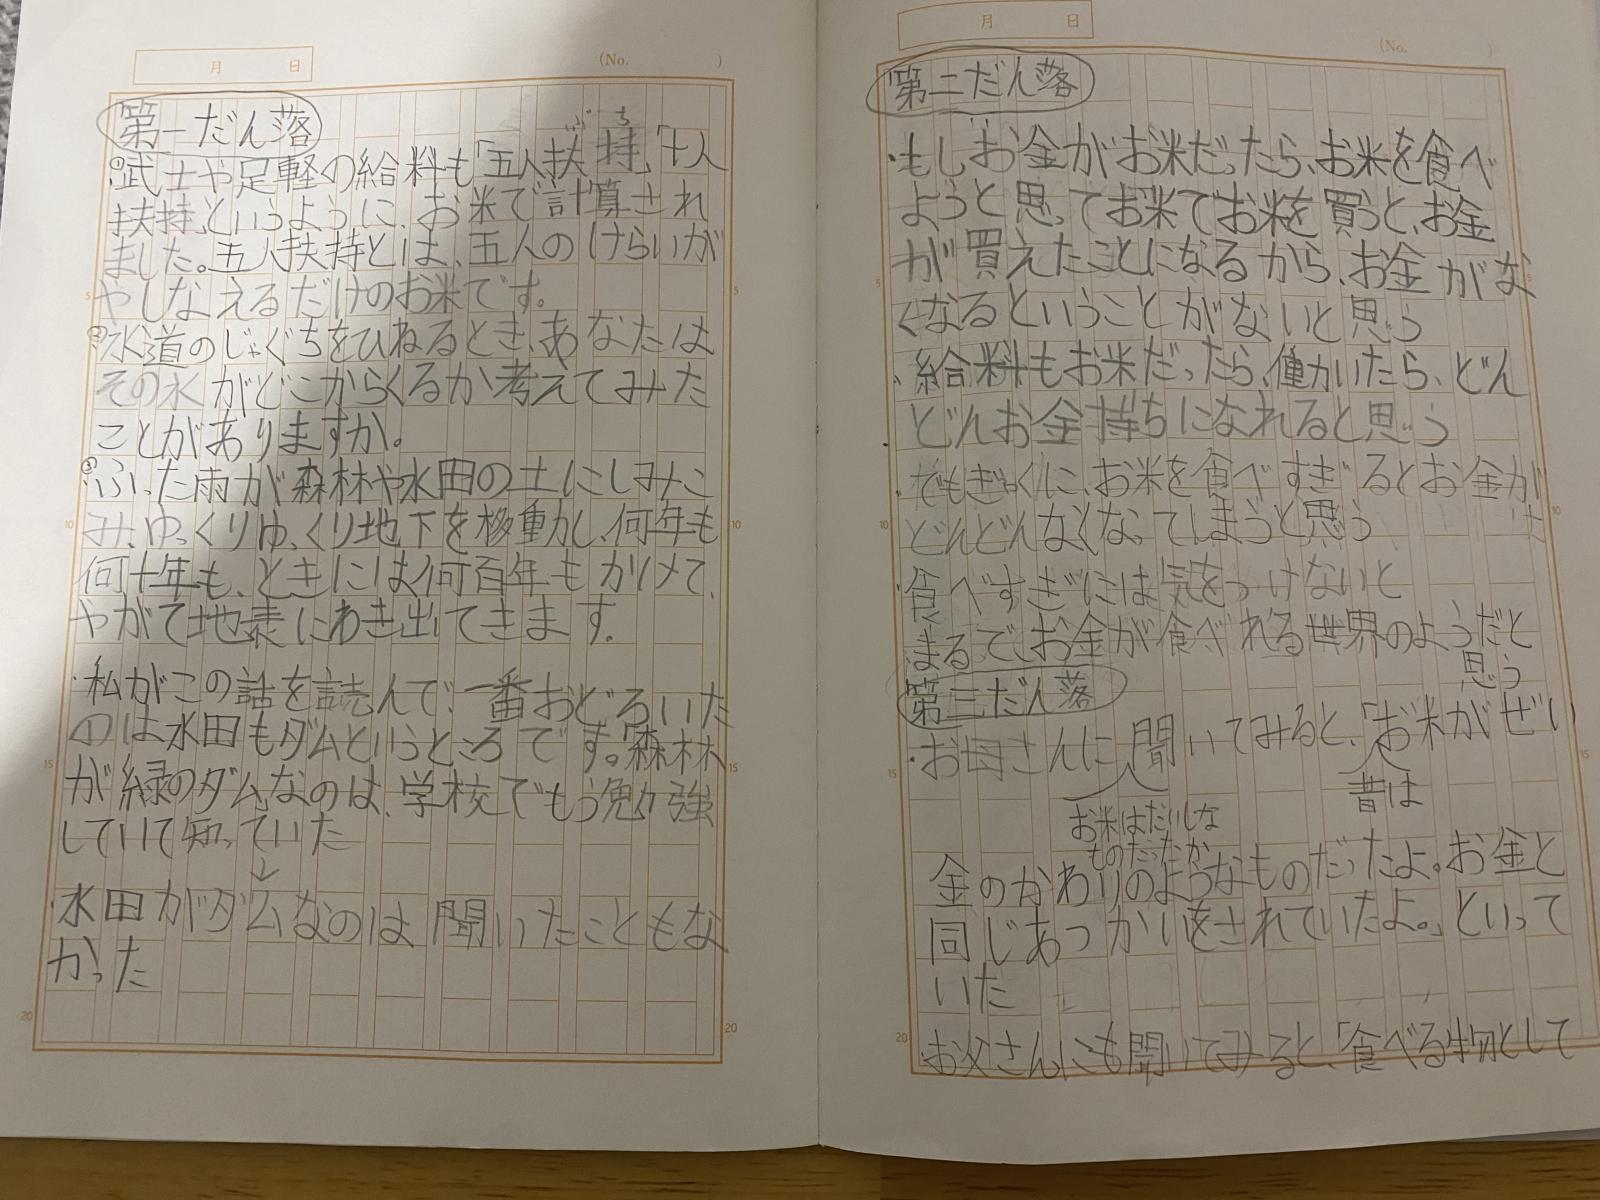 月 日
(No. )
第一だん落
①武士や足軽の給料も「五人扶持」「十人
ぶち
扶持」というように、お米で計算され
ました。五人扶持とは、五人のけらいが
やしなえるだけのお米です。
②水道のじゃぐちをひねるとき、あなたは
その水がどこからくるか考えてみた
ことがありますか。
③ふった雨が森林や水田の土にしみこ
み、ゆっくりゆっくり地下を移動し、何年も
何十年も、ときには何百年もかけて、
やがて地表にわき出てきます。
・私がこの話を読んで、一番おどろいた
のは水田もダムというところです。森林
が緑のダムなのは、学校でもう勉強
していて知っていた
↓
・水田がダムなのは聞いたこともな
かった
5
10
15
20
5
10
15
20
月 日
(No. )
第二だん落
・もしお金がお米だったら、お米を食べ
ようと思ってお米でお米を買うと、お金
が買えたことになるから、お金がな
くなるということがないと思う
・給料もお米だったら、働かいたら、どん
どんお金持ちになれると思う
・でもぎゃくに、お米を食べすぎるとお金が
どんどんなくなってしまうと思う
食べすぎには気をつけないと
・まるで、お金が食べれる世界のようだと
思う
第三だん落
・お母さんに聞いてみると、「お米がぜい
昔は
お米はだいじな
ものだったか
金のかわりのようなものだったよ。お金と
同じあつかいをされていたよ。」といって
いた
・お父さんにも聞いてみると、「食べる物として
5
10
15
20
10
15